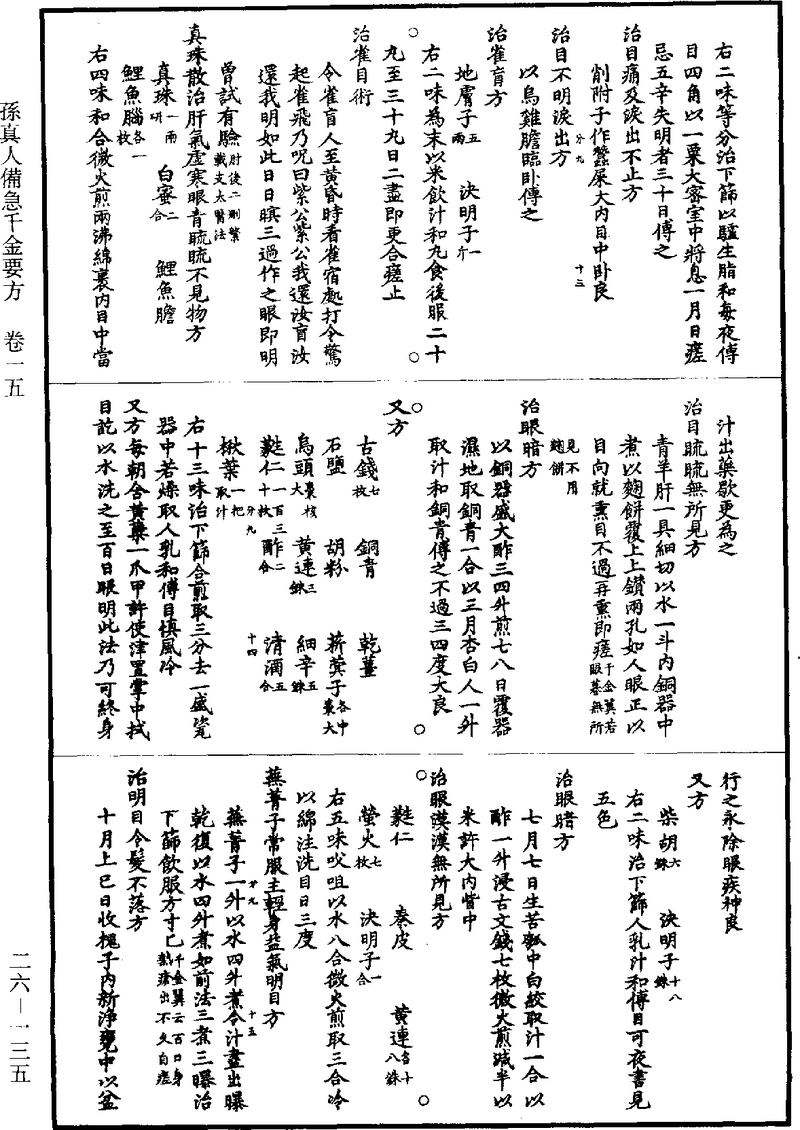 孫真人備急千金要方　卷一五
右二味等分治下篩以驢生脂和每夜傅
目四角以一粟大密室中將息一月日瘥
忌五辛失明者三十日傅之
治目痛及淚出不止方
削附子作蠶屎大内目中卧良
治目不明淚出方
以烏雞膽臨卧傅之
治雀盲方
地膚子五兩　決明子一斤
右二味為末以米飲汁和丸食後服二十
丸至三十丸日二盡即更合瘥止
治雀目術
令雀盲人至黄昏時看雀宿處打令驚
起雀飛乃呪曰紫公紫公我還汝盲汝
還我明如此日日暝三過作之眼即明
曾試有驗肘後二刪繁載支太醫法
真珠散治肝氣虛寒眼青䀮䀮不見物方
真珠一兩研　白蜜二合　鯉魚膽
鯉魚腦各一枚
右四味和合微火煎兩沸綿裹内目中當
汁出藥歇更為之
治目䀮䀮無所見方
青羊肝一具細切以水一斗内銅器中
煮以麴餅覆上上鑽兩孔如人眼正以
目向就熏目不過再熏即瘥千金翼若眼暮無所
見不用麴餅
治眼暗方
以銅器盛大酢三四升煎七八日覆器
濕地取銅青一合以三月杏白人一升
取汁和銅青傅之不過三四度大良
又方
古錢七枚　銅青　乾薑
石鹽　胡粉　蕲蓂子各中棗大
烏頭棗核大　黄連三銖　細辛五銖
蕤仁一百三十枚　酢二合　清酒五合
楸葉一把取汁
右十三味治下篩合煎取三分去一盛瓷
器中若燥取人乳和傅目慎風冷
又方每朝含黄蘗一爪甲許使津置掌中拭
目訖以水洗之至百日眼明此法乃可終身
行之永除眼疾神良
又方
柴胡六銖　決明子十八銖
右二味治下篩人乳汁和傅目可夜書見
五色
治眼暗方
七月七日生苦瓠中白絞取汁一合以
酢一升浸古文錢七枚微火煎減半以
米許大内眥中
治眼漠漠無所見方
蕤仁　秦皮　黄連各十八銖
螢火七枚　決明子一合
右五味㕮咀以水八合微火煎取三合冷
以綿注洗目日三度
蕪菁子常服主輕身益氣明目方
蕪菁子一升以水四升煮令汁盡出曝
乾復以水四升煮如前法三煮三曝治
下篩飲服方寸匕千金翼云百日身熱瘡出不久自瘥
治明目令髮不落方
十月上巳日收槐子内新淨甕中以盆
二六—一三五